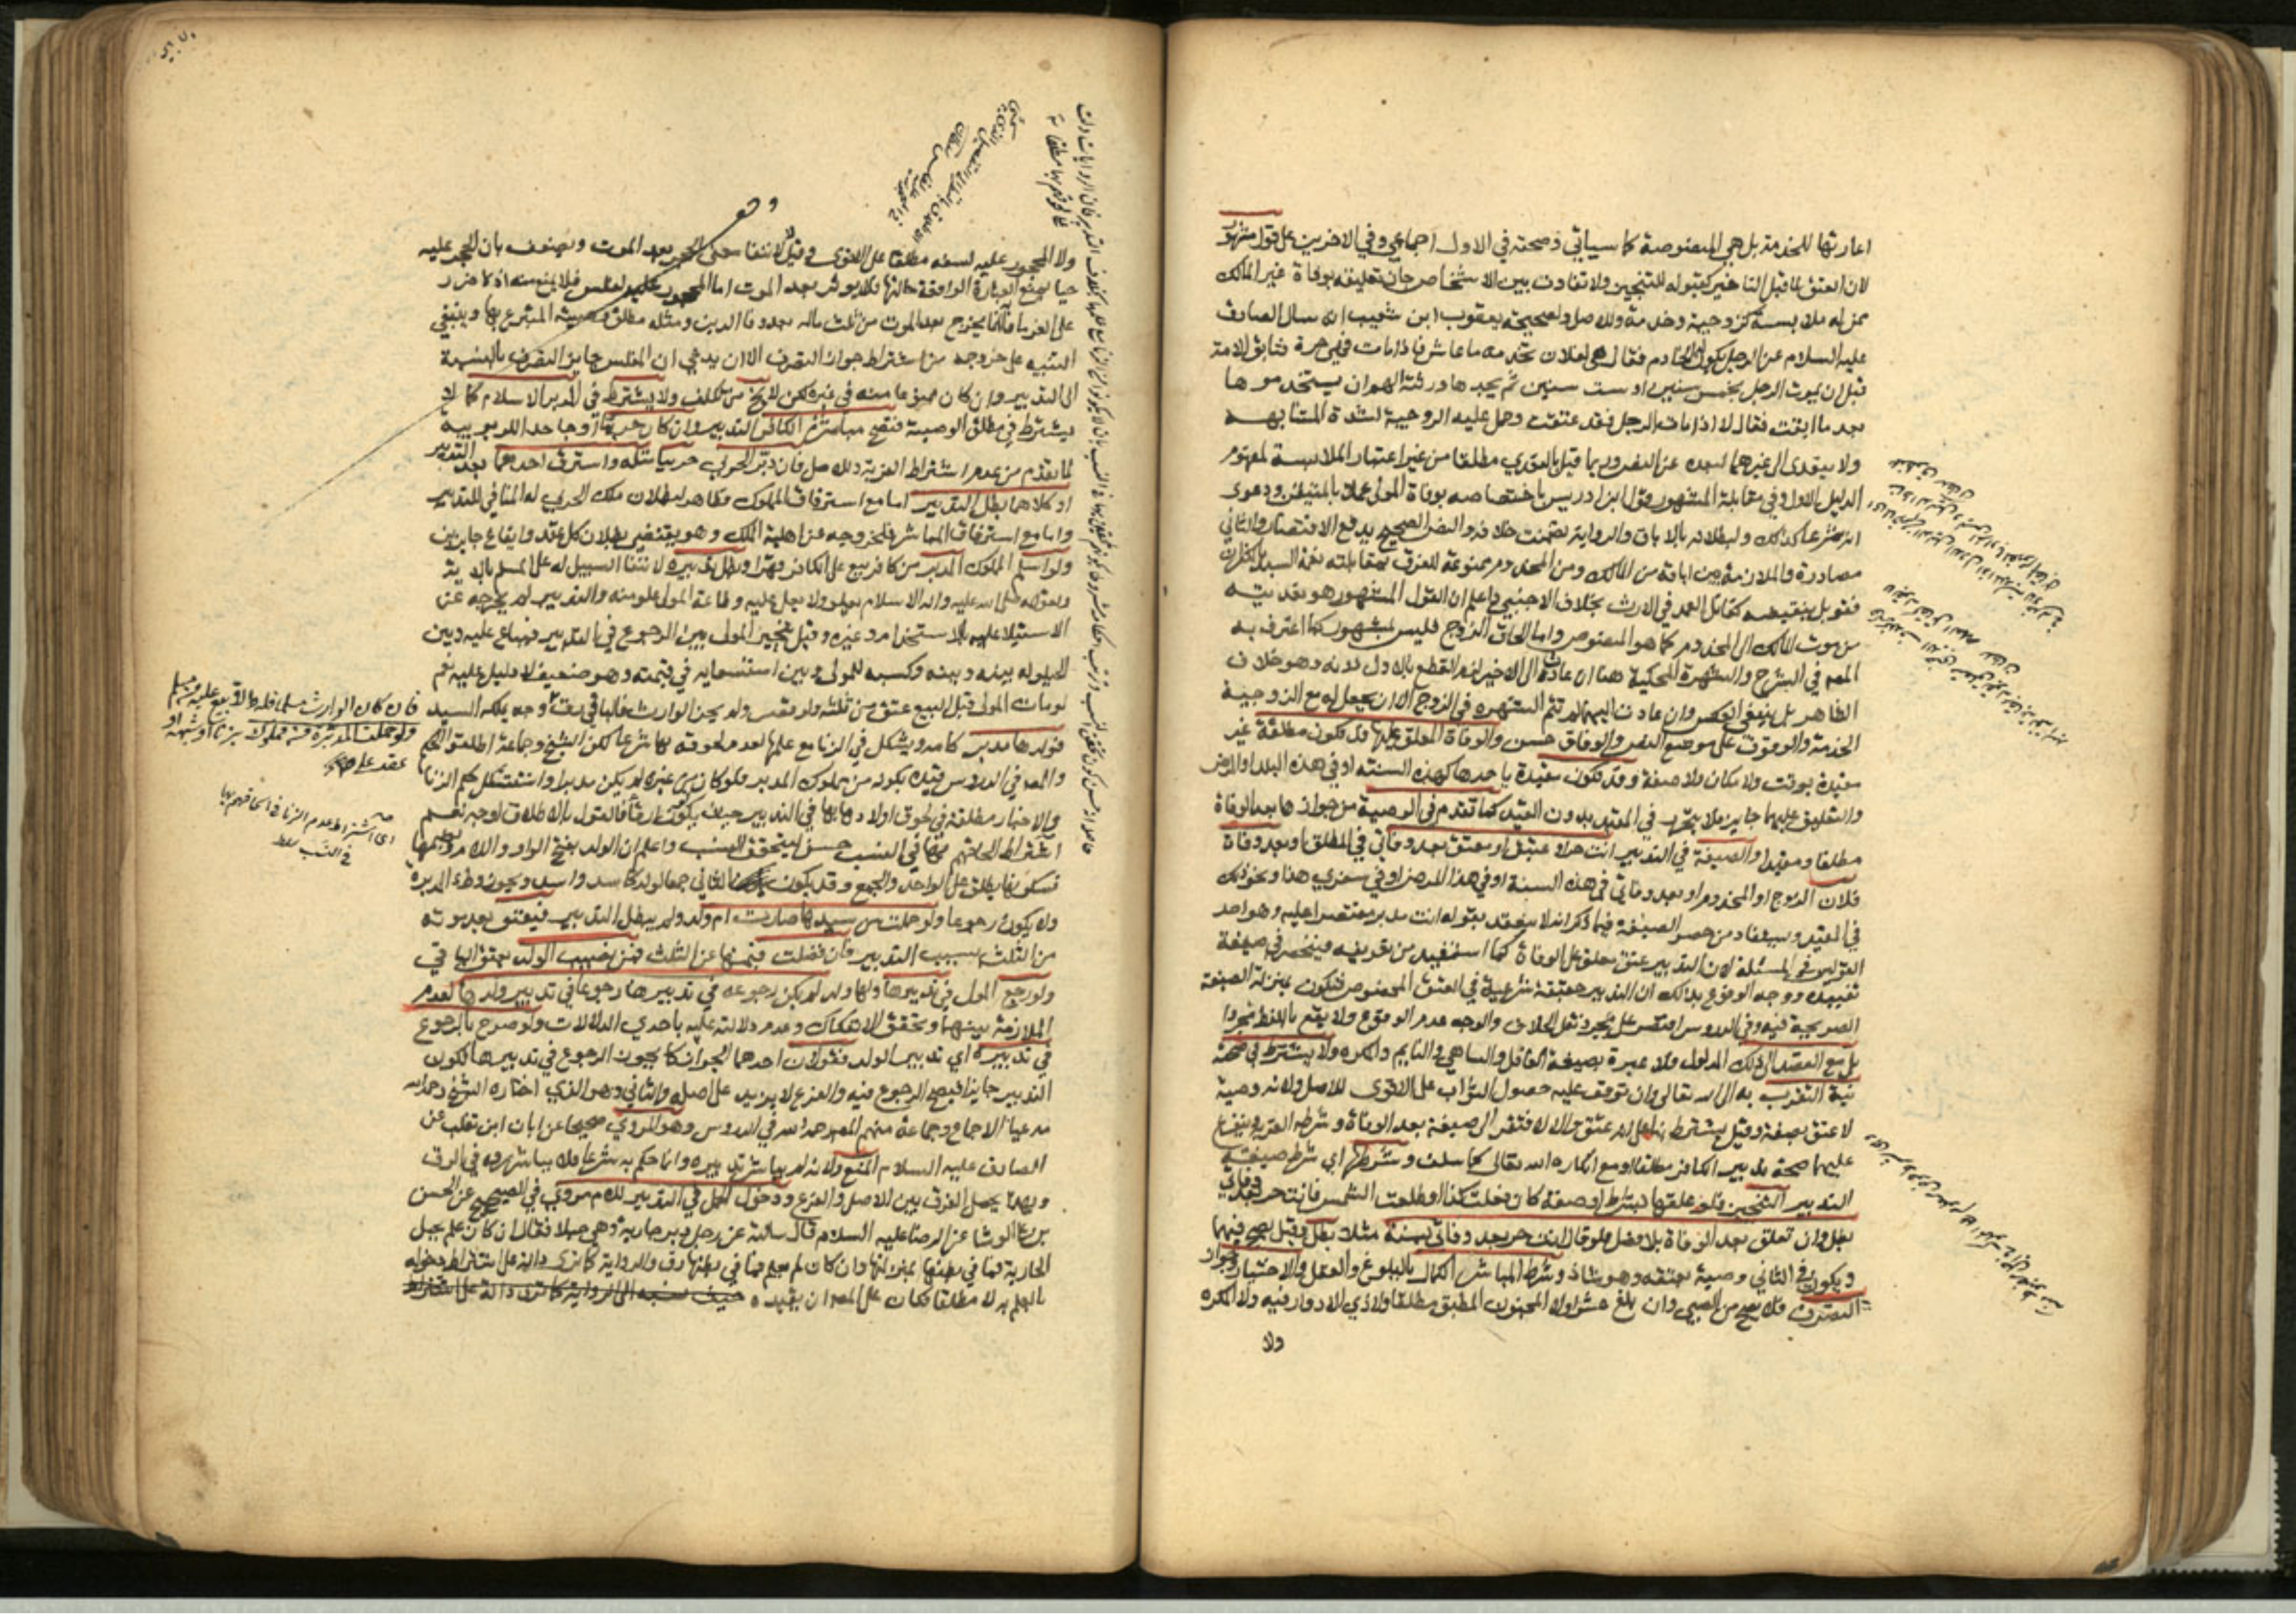 اعارتها للخدمة بل هي المنصوصة كما سياتي فصحته في الاول اجماعي وفي الاخرين على قول مشهور
لان العتق لما قبل التاخير كقبوله للتنجيز ولا تفاوت بين الاشخاص جاز تعليقه بوفاة غير المالك
ممن له ملابسة كزوجية وخدمة وللاصل ولصحيحة يعقوب ابن شعيب انه سال الصادق
عليه السلام عن الرجل يكون له الخادم فقال هي لفلان تخدمه ما عاش فاذا مات فهي حرة فتابق الامة
قبل ان يموت الرجل بخمس سنين او ست سنين ثم يجدها ورثته الهم ان يستخدموها
بعد ما ابقت فقال لا اذا مات الرجل فقد عتقت وحمل عليه الزوجية لشدة المشابهة
ولا يتعدى الى غيرهما لبعده عن النص وربما قيل بالتعدي مطلقا من غير اعتبار الملابسة لمفهوم
الدليل الاول وفي مقابلة المشهور قول ابن ادريس باختصاصه بوفاة المولى عملا بالمتيقن ودعوى
انه شرعا كذلك ولبطلانه بالاباق والرواية تضمنت خلافه والنص الصحيح يدفع الاقتصار والثاني
مصادرة والملازمة بين اباقه من المالك ومن المخدوم ممنوعة للفرق بمقابلته نعمة السيد بالكفران
فقوبل بنقيضه كقاتل العمد في الارث بخلاف الاجنبي واعلم ان القول المشهور هو تعديته
من موت المالك الى المخدوم كما هو المنصوص واما الحاق الزوج فليس بمشهور كما اعترف به
المصه في الشرح والشهرة المحكية هنا ان عادت الى الاخير لزم القطع بالاول لانه وهو خلاف
الظاهر بل ينبغي العكس وان عادت اليهما لم تتم الشهرة في الزوج الا ان يجعل له مع الزوجية
الخدمة والوقوف على موضع النص والوفاق حسن والوفاة المعلق عليها قد تكون مطلقة غير
مقيدة بوقت ولا مكان ولا صفة وقد تكون مقيدة باحدها كهذه السنة او في هذه البلد او المرض
والتعليق عليهما جايز فلا يتحرر في المقيد بدون القيد كما تقدم في الوصية من جوازها بعد الوفاة
مطلقا ومقيدا والصيغة في التدبير انت حر او عتيق او معتق بعد وفاتي في المطلق او بعد وفاة
فلان الزوج او المخدوم او بعد وفاتي في هذه السنة او في هذا المرض او في سفري هذا ونحو ذلك
في المقيد ويستفاد من حصر الصيغة فيما ذكر انه لا ينعقد بقوله انت مدبر مقتصرا عليه وهو احد
القولين في المسئلة لان التدبير عتق معلق على الوفاة كما استفيد من تعريفه فينحصر في صيغة
تفيده ووجه الوقوع بذلك ان التدبير حقيقة شرعية في العتق المخصوص فيكون بمنزلة الصيغة
الصريحة فيه وفي الدروس اقتصر على مجرد نقل الخلاف والوجه عدم الوقوع ولا يقع باللفظ مجردا
بل مع القصد الى ذلك المدلول فلا عبرة بصيغة الغافل والساهي والنايم والمكره ولا يشترط في صحته
نية التقرب به الى الله تعالى وان توقف عليه حصول الثواب على الاقوى للاصل ولانه وصية
لا عتق بصفة وقيل يشترط بناء على انه عتق والا لافتقر الى صيغة بعد الوفاة وشرطه القربة ويتفرع
عليهما صحة تدبير الكافر مطلقا او مع انكاره الله تعالى كما سلف وشرطها اي شرط صيغة
التدبير التنجيز فلو علقها بشرط او صفة كان فعلت كذا او طلعت الشمس فانت حر بعد وفاتي
بطل وان تعلق بعد الوفاة بلا فصل فلو قال انت حر بعد وفاتي بسنة مثلا بطل وقيل يصح فيهما
ويكون في الثاني وصية بعتقه وهو شاذ وشرط المباشر الكمال بالبلوغ والعقل والاختيار وجواز
التصرف فلا يصح من الصبي وان بلغ عشرا ولا المجنون المطبق مطلقا ولا ذي الادوار فيه ولا المكره
ولا
ولا المحجور عليه لسفه مطلقا على الاقوى وقيل لا لانتفا معنى الحجر بعد الموت ويضعف بان الحجر عليه
حيا يمنع العبارة الواقعة حالتها فلا يوثر بعد الموت اما المحجور عليه لفلس فلا يمنع منه اذ لا ضرر
على الغرما فانما يخرج بعد الموت من ثلث ماله بعد وفا الدين ومثله مطلق وصيته المتبرع بها وينبغي
التنبيه على خروجه من اشتراط جواز التصرف الا ان يدعي ان المفلس جايز التصرف بالنسبة
الى التدبير وان كان ممنوعا منه في غيره لكن لا يخ من تكلف ولا يشترط في المدبر الاسلام كما لا
يشترط في مطلق الوصية فتصح مباشرة الكافر التدبير وان كان حربيا او جاحدا للربوبية
لما تقدم من عدم اشتراط القربة وللاصل فان دبر الحربي حربيا مثله واسترق احدهما بعد التدبير
او كلاهما بطل التدبير اما مع استرقاق المملوك فظاهر لبطلان ملك الحربي له المنافي للتدبير
واما مع استرقاق المباشر فلخروجه عن اهلية الملك وهو يقتضي بطلان كل عقد وايقاع جايزين
ولو اسلم المملوك المدبر من كافر بيع على الكافر قهرا وبطل تدبيره لانتفا السبيل له على المسلم بالاية
ولقوله صلى الله عليه واله الاسلام يعلو ولا يعلى عليه وطاعة المولى علو منه والتدبير لم يخرجه عن
الاستيلا عليه بالاستخدام وغيره وقيل يتخير المولى بين الرجوع في التدبير فيباع عليه وبين
الحيلولة بينه وبينه وكسبه للمولى وبين استسعايه في قيمته وهو ضعيف لا دليل عليه نعم
لو مات المولى قبل البيع عتق من ثلثه ولو نقص ولم يجز الوارث فالباقي رق
فولدها مدبر كامه ويشكل في الزنا مع علمها لعدم لحوقه بها شرعا لكن الشيخ وجماعة اطلقوا الحكم
والمصه في الدروس قيده بكونه من مملوك المدبر فلو كان من غيره لم يكن مدبرا واستشكل حكم الزنا
والاخبار مطلقة في لحوق اولادها بها في التدبير حيث يكون رقا فالقول بالاطلاق اوجه نعم
اشتراط الحاقهم بها في النسب حسن ليتحقق النسب واعلم ان الولد بفتح الواو واللام وبضمها
فسكون يطلق على الواحد والجمع وقد يكون الثاني جمعا لولد كاسد واسد ويجوز وطء المدبرة
ولا يكون رجوعا ولو حملت من سيدها صارت ام ولد ولم يبطل التدبير فتعتق بعد موته
من الثلث بسبب التدبير فان فضلت قيمتها عن الثلث فمن نصيب الولد يعتق الباقي
ولو رجع المولى في تدبيرها ولها ولد لم يكن رجوعه في تدبيرها رجوعا في تدبير ولدها لعدم
الملازمة بينهما وتحقق الانفكاك وعدم دلالته عليه باحدي الدلالات ولو صرح بالرجوع
في تدبيره اي تدبير الولد فقولان احدهما الجواز كما يجوز الرجوع في تدبيرها لكون
التدبير جايزا فيصح الرجوع فيه والفرع لا يزيد على اصله والثاني وهو الذي اختاره الشيخ رحمه الله
مدعيا الاجماع وجماعة منهم المصه رحمه الله في الدروس وهو المروي صحيحا عن ابان ابن تغلب عن
الصادق عليه السلام المنع ولانه لم يباشر تدبيره وانما حكم به شرعا فلا يباشر رده في الرق
وبهذا يحصل الفرق بين الاصل والفرع ودخول الحمل في التدبير للام مروي في الصحيح عن الحسن
بن علي الوشا عن الرضا عليه السلام قال سالته عن رجل دبر جارية وهي حبلى فقال ان كان علم بحبل
الجارية فما في بطنها بمنزلتها وان كان لم يعلم فما في بطنها رق والرواية كما ترى دالة على اشتراط دخوله
بالعلم به لا مطلقا فكان على المصه ان يقيده
فان كان الوارث مسلما فله والا بيع عليه من مسلم
ولو حملت المدبرة من مملوك بزنا او شبهة او
عقد على
اي اشتراط عدم الزنا في الحاقهم بها
في النسب